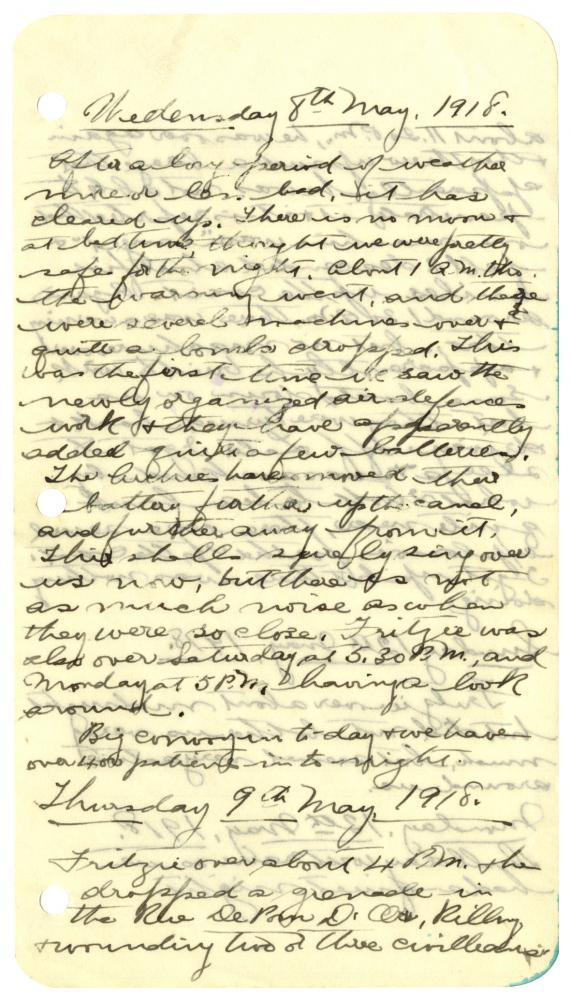 Wedensday 8th May, 1918.
After a long period of weather
more or less bad, it has
cleared up. There is no moon &
at bed time thought we were pretty
safe for the night. About 1 a.m. tho.
the warning went, and there
were several machines over &
quite a bombs dropped. This
was the first time we saw the
newly organized air defences
work & they have apparently
added quite a few batteries.
The Archies have moved their
battery further up the canal,
and further away from it.
This shells surely sing over
us now, but there is not
as much noise as when
they were so close. Fritzie was
also over Saturday at 5.30 P.M., and
Monday at 5 P.M, having a look
around.
Big convoy in to-day & we have
over 400 patients in to-night.
Thursday 9th May, 1918.
Fritzie over about 4 P.M. & he
dropped a grenade in
the Rue De Pom D' Or, killing
& wounding two or three civilleans